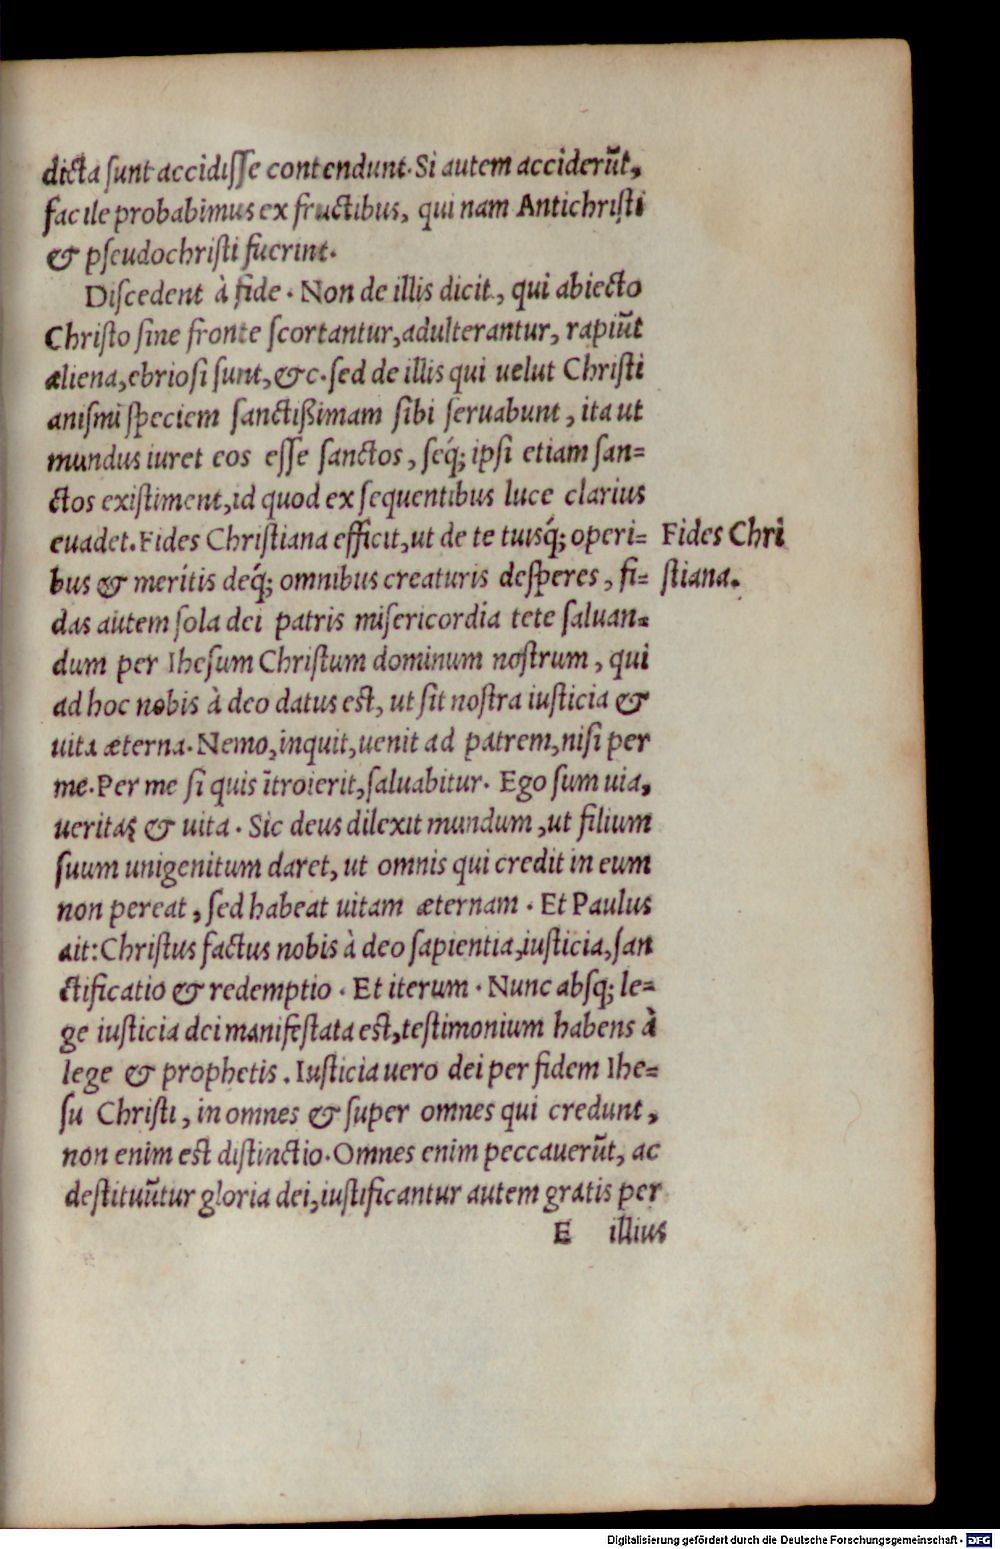 dicta ſunt accidiſſe contendunt. Si autem acciderūt,
facile probabimus ex fructibus, qui nam Antichriſti
& pſeudochriſti fuerint.
Diſcedent à fide. Non de illis dicit, qui abiecto
Chriſto ſine fronte ſcortantur, adulterantur, rapiūt
aliena, ebrioſi ſunt, &c. ſed de illis qui uelut Chriſti
aniſmi ſpeciem ſanctißimam ſibi ſeruabunt, ita ut
mundus iuret eos eſſe ſanctos, ſeq́; ipſi etiam ſan=
ctos exiſtiment, id quod ex ſequentibus luce clarius
euadet. Fides Chriſtiana efficit, ut de te tuisq́; operi=
Fides Chri
bus & meritis deq́; omnibus creaturis deſperes, fi=
ſtiana.
das autem ſola dei patris miſericordia tete ſaluan=
dum per Iheſum Chriſtum dominum noſtrum, qui
ad hoc nobis à deo datus eſt, ut ſit noſtra iuſticia &
uita æterna. Nemo, inquit, uenit ad patrem, niſi per
me. Per me ſi quis ītroierit, ſaluabitur. Ego ſum uia,
ueritas & uita. Sic deus dilexit mundum, ut filium
ſuum unigenitum daret, ut omnis qui credit in eum
non pereat, ſed habeat uitam æternam. Et Paulus
ait: Chriſtus factus nobis à deo ſapientia, iuſticia, ſan
ctificatio & redemptio. Et iterum. Nunc abſq; le=
ge iuſticia dei manifeſtata eſt, teſtimonium habens à
lege & prophetis. Iuſticia uero dei per fidem Ihe=
ſu Chriſti, in omnes & ſuper omnes qui credunt,
non enim eſt diſtinctio. Omnes enim peccauerūt, ac
deſtituūtur gloria dei, iuſtificantur autem gratis per
E illius
Digitalisierung gefördert durch die Deutsche Forschungsgemeinschaft - DFG